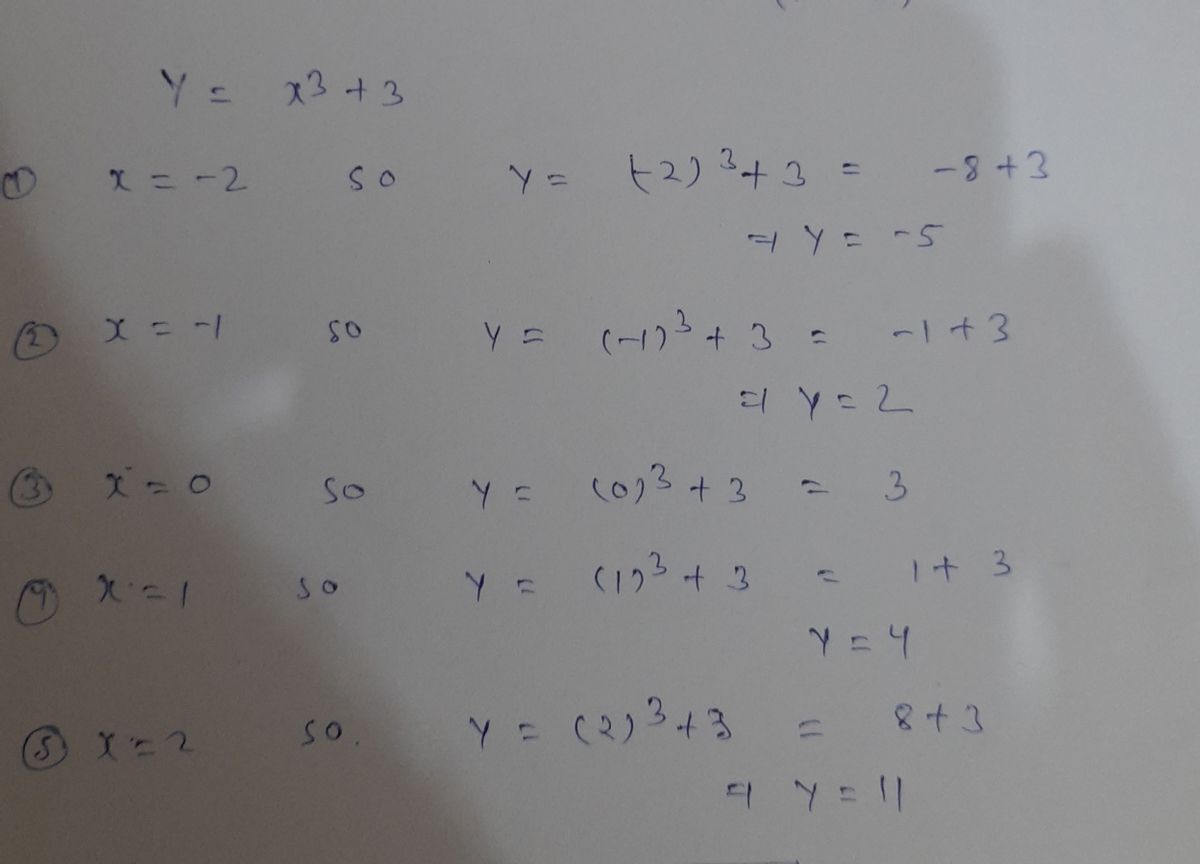 Y = x³ + 3
① x = -2 so Y = (-2)³ + 3 = -8 + 3
⇒ Y = -5
② x = -1 so Y = (-1)³ + 3 = -1 + 3
⇒ Y = 2
③ x = 0 so Y = (0)³ + 3 = 3
④ x = 1 so Y = (1)³ + 3 = 1 + 3
Y = 4
⑤ x = 2 so. Y = (2)³ + 3 = 8 + 3
⇒ Y = 11